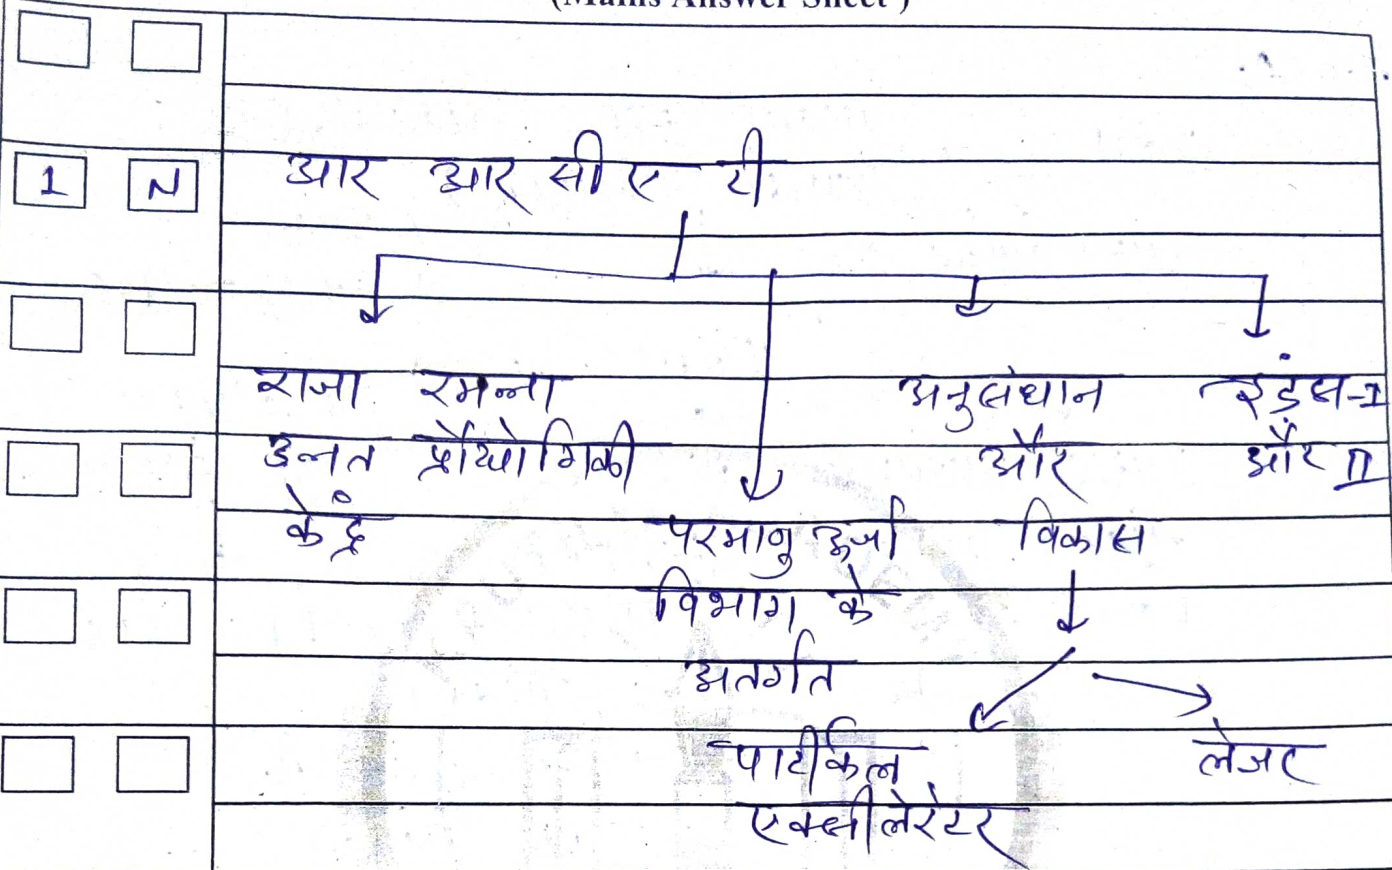 (Mains Answer Sheet )
1 N आर आर सी ए टी
राजा रमन्ना
उन्नत प्रौद्योगिकी
केंद्र
परमानु ऊर्जा
विभाग के
अतर्गत
अनुसंधान
और
विकास
पार्टीकल
एक्सीलेरेटर
लेजर
इंडस-I
और II